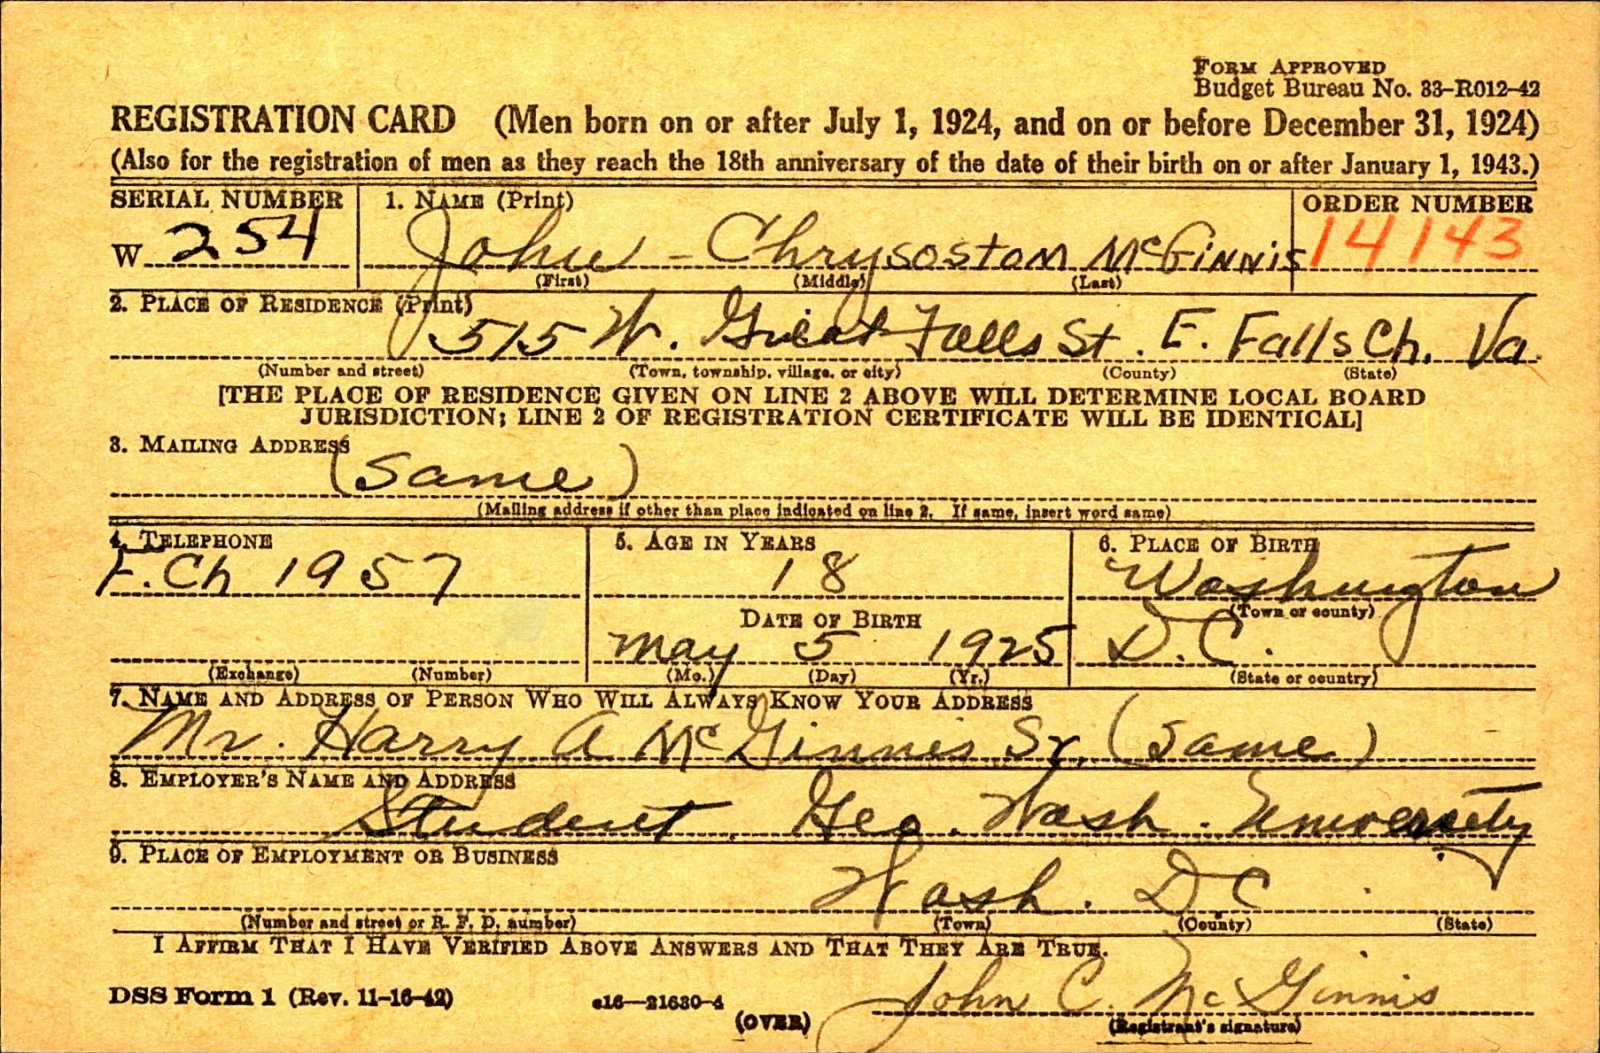 FORM APPROVED
Budget Bureau No. 33-R012-42
REGISTRATION CARD (Men born on or after July 1, 1924, and on or before December 31, 1924)
(Also for the registration of men as they reach the 18th anniversary of the date of their birth on or after January 1, 1943.)
SERIAL NUMBER 1. NAME (Print) ORDER NUMBER
W 254 John - Chrysostom McGinnis 14143
(First) (Middle) (Last)
2. PLACE OF RESIDENCE (Print)
515 W. Great Falls St. E. Falls Ch. Va.
(Number and street) (Town, township, village, or city) (County) (State)
[THE PLACE OF RESIDENCE GIVEN ON LINE 2 ABOVE WILL DETERMINE LOCAL BOARD
JURISDICTION; LINE 2 OF REGISTRATION CERTIFICATE WILL BE IDENTICAL]
3. MAILING ADDRESS
(Same)
(Mailing address if other than place indicated on line 2. If same, insert word same)
4. TELEPHONE 5. AGE IN YEARS 6. PLACE OF BIRTH
F. Ch 1957 18 Washington
DATE OF BIRTH (Town or county)
May 5 1925 D.C.
(Exchange) (Number) (Mo.) (Day) (Yr.) (State or country)
7. NAME AND ADDRESS OF PERSON WHO WILL ALWAYS KNOW YOUR ADDRESS
Mr. Harry A McGinnis Sr. (Same)
8. EMPLOYER'S NAME AND ADDRESS
Student. Geo. Wash. University
9. PLACE OF EMPLOYMENT OR BUSINESS
Wash. DC
(Number and street or R. F. D. number) (Town) (County) (State)
I AFFIRM THAT I HAVE VERIFIED ABOVE ANSWERS AND THAT THEY ARE TRUE.
John C. McGinnis
DSS Form 1 (Rev. 11-16-42) c16—21630-4 (OVER) (Registrant's signature)